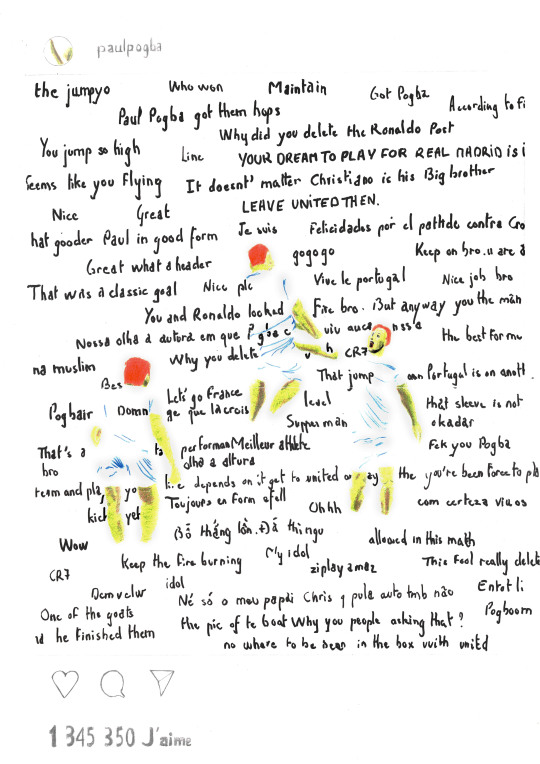 paulpogba
the jumpyo Who won Maintain Got Pogba According to fi
Paul Pogba got them hops
Why did you delete the Ronaldo Post
You jump so high Line YOUR DREAM TO PLAY FOR REAL MADRID IS i
Seems like you Flying It doesnt' matter Christiano is his Big brother
Nice Great LEAVE UNITED THEN.
hat gooder Paul in good form Je suis Felicidades por el
contra Cro
Great what a header gogogo Keep on bro. u are a
That was a classic goal Nice Vive le portugal Nice job bro
You and Ronaldo looked Fire bro. But anyway you the man
Nossa olha a em que viu the best for me
na muslim Why you delete CR7
Bes That jump Portugal is on
Pogbair Domn Let's go France level that sleeve is not
ge que la crois Supper man okadar
That's a performan Meilleur athlete Fck you Pogba
bro olha a altura
team and pla yo depends on it get to united the you're been force to pla
kick yet Toujours en form Ohhh com certeza
allowed in this math
Wow Keep the fire burning My idol This Fool really delete
CR7 idol
Né só o meu papai Chris q pula auto tmb não
One of the goats Pogboom
he finished them the pic of te boat Why you people asking that ?
no where to be seen in the box with united
1 345 350 J'aime